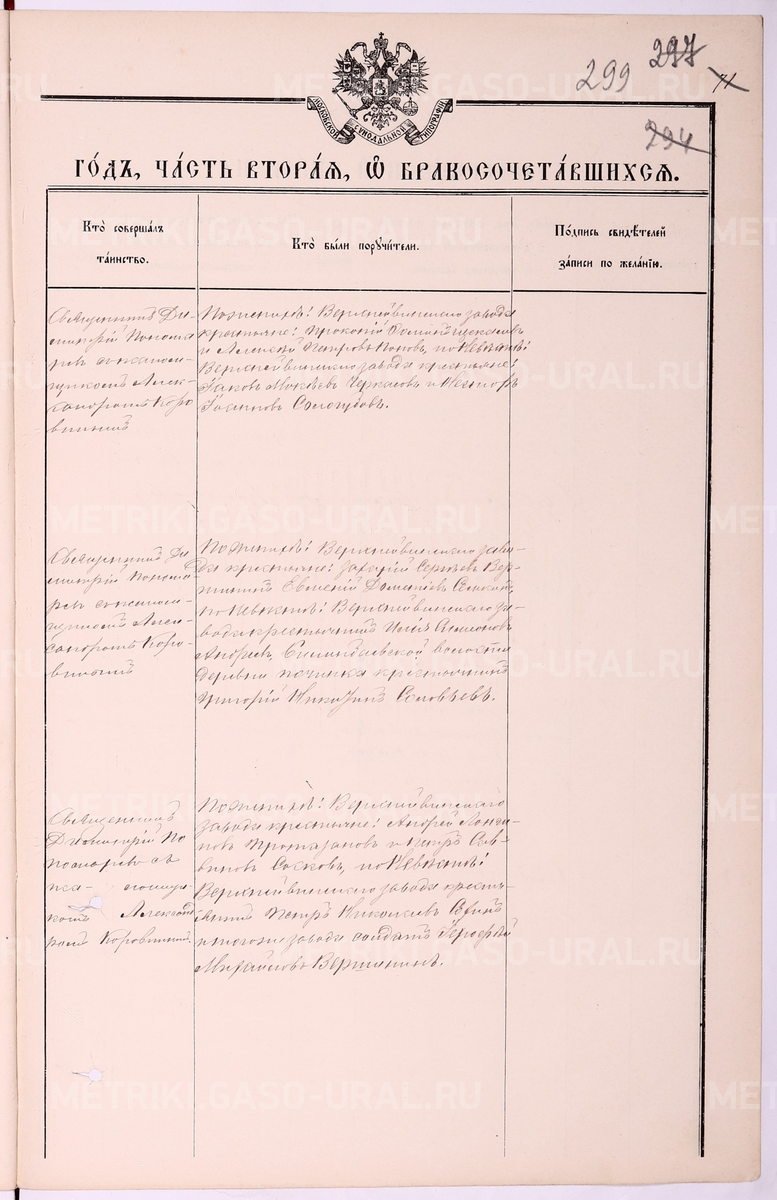 299 297
11
294
МОСКОВСКОЙ СѴНОДАЛЬНОЙ ТИПОГРАФІИ
ГО́ДЪ, ЧА́СТЬ ВТОРА́Я, Ѡ҆ БРАКОСОЧЕТА́ВШИХСЯ.
Кто̀ совершалъ
та́инство.
Кто̀ бы́ли поручи́тели.
По́дпись свидѣ́телей
за́писи по жела́нїю.
Священникъ Ди-
митрій Понома
ревъ съ псалом-
щикомъ Алек-
сандромъ Коро
винымъ
По женихѣ: Верхнейвинскаго завода
крестьяне: Прокопій
и Алексѣй Петровъ Поповъ, по невѣстѣ:
Верхнейвинскаго завода крестьяне:
Іаковъ Мокѣевъ Черкасовъ и Несторъ
Іоакимовъ Сологубовъ.
Священникъ Ди
митрій Поном
ревъ съ псалом-
щикомъ Алек-
сандромъ Коро-
винымъ
По женихѣ: Верхнейвинскаго заво-
да крестьяне: Захарій Сергѣевъ Вер-
шининъ Евгеній
по невѣстѣ: Верхнейвинскаго за-
вода крестьянинъ Илія Симеоновъ
Андреевъ, волости
деревни починка крестьянинъ
Григорій Никитинъ Соловьевъ.
Священникъ
Димитрій По
номаревъ съ
пса- ломщи-
комъ Александ
ромъ Коровинымъ.
По женихѣ: Верхнейвинскаго
завода крестьяне: Андрей Лонги-
новъ Протазановъ и Петръ Сав-
виновъ Сосковъ, по невѣстѣ:
Верхнейвинскаго завода кресть-
янинъ Петръ Николаевъ
и тогоже завода солдатъ Герофей
Михайловъ Вершининъ.
METRIKI.GASO-URAL.RU